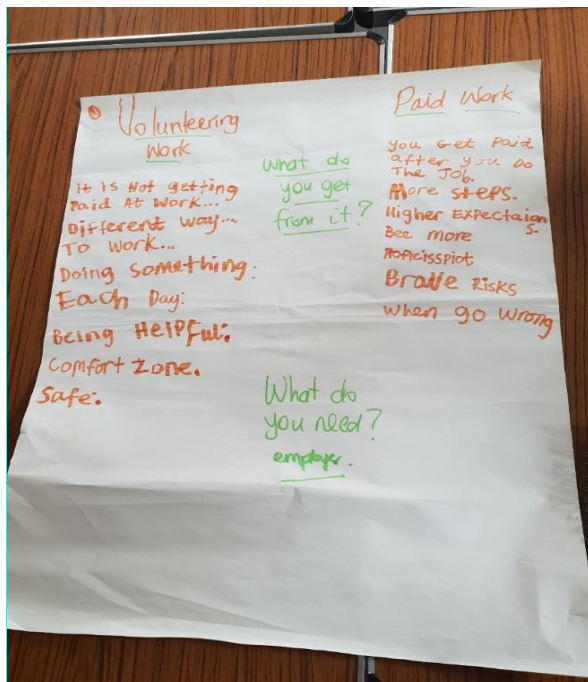 Volunteering
Work
it is Not getting
Paid At work...
Different way...
To work...
Doing something:
Each Day:
Being Helpful:
Comfort zone.
Safe:
What do
you get
from it?
What do
you need?
employer.
Paid Work
you Get Paid
after you Do
The Job.
More steps.
Higher Expectaion
s.
Bee more
Risks
when go wrong